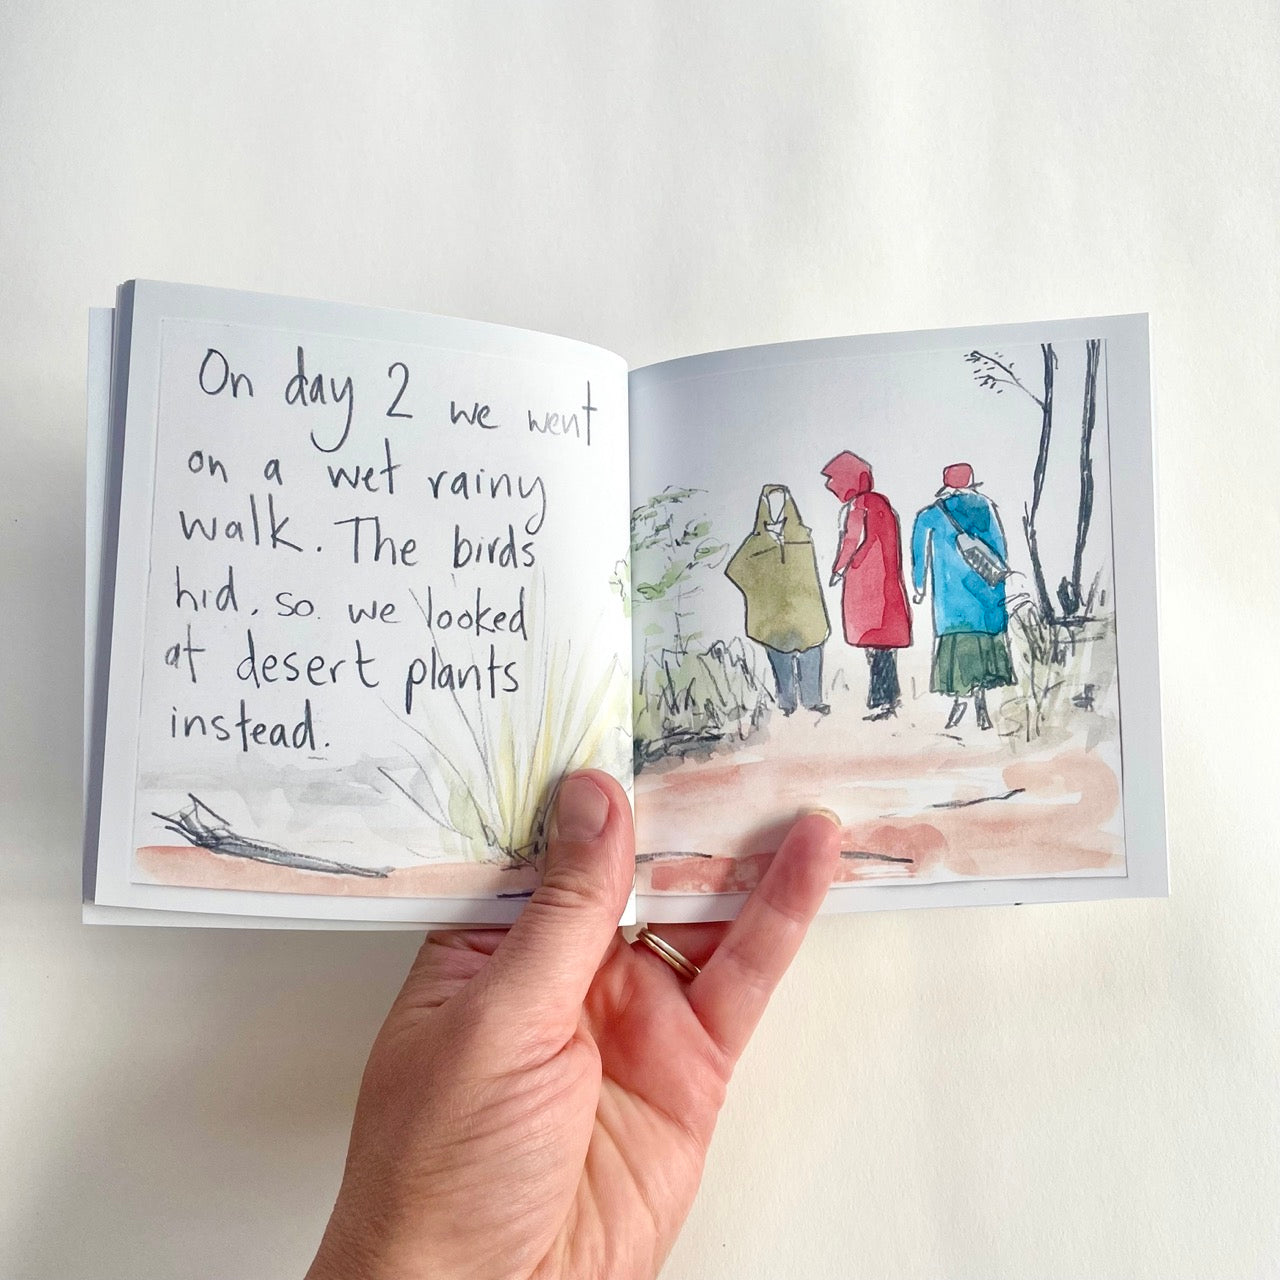 On day 2 we went
on a wet rainy
walk. The birds
hid. so we looked
at desert plants
instead.